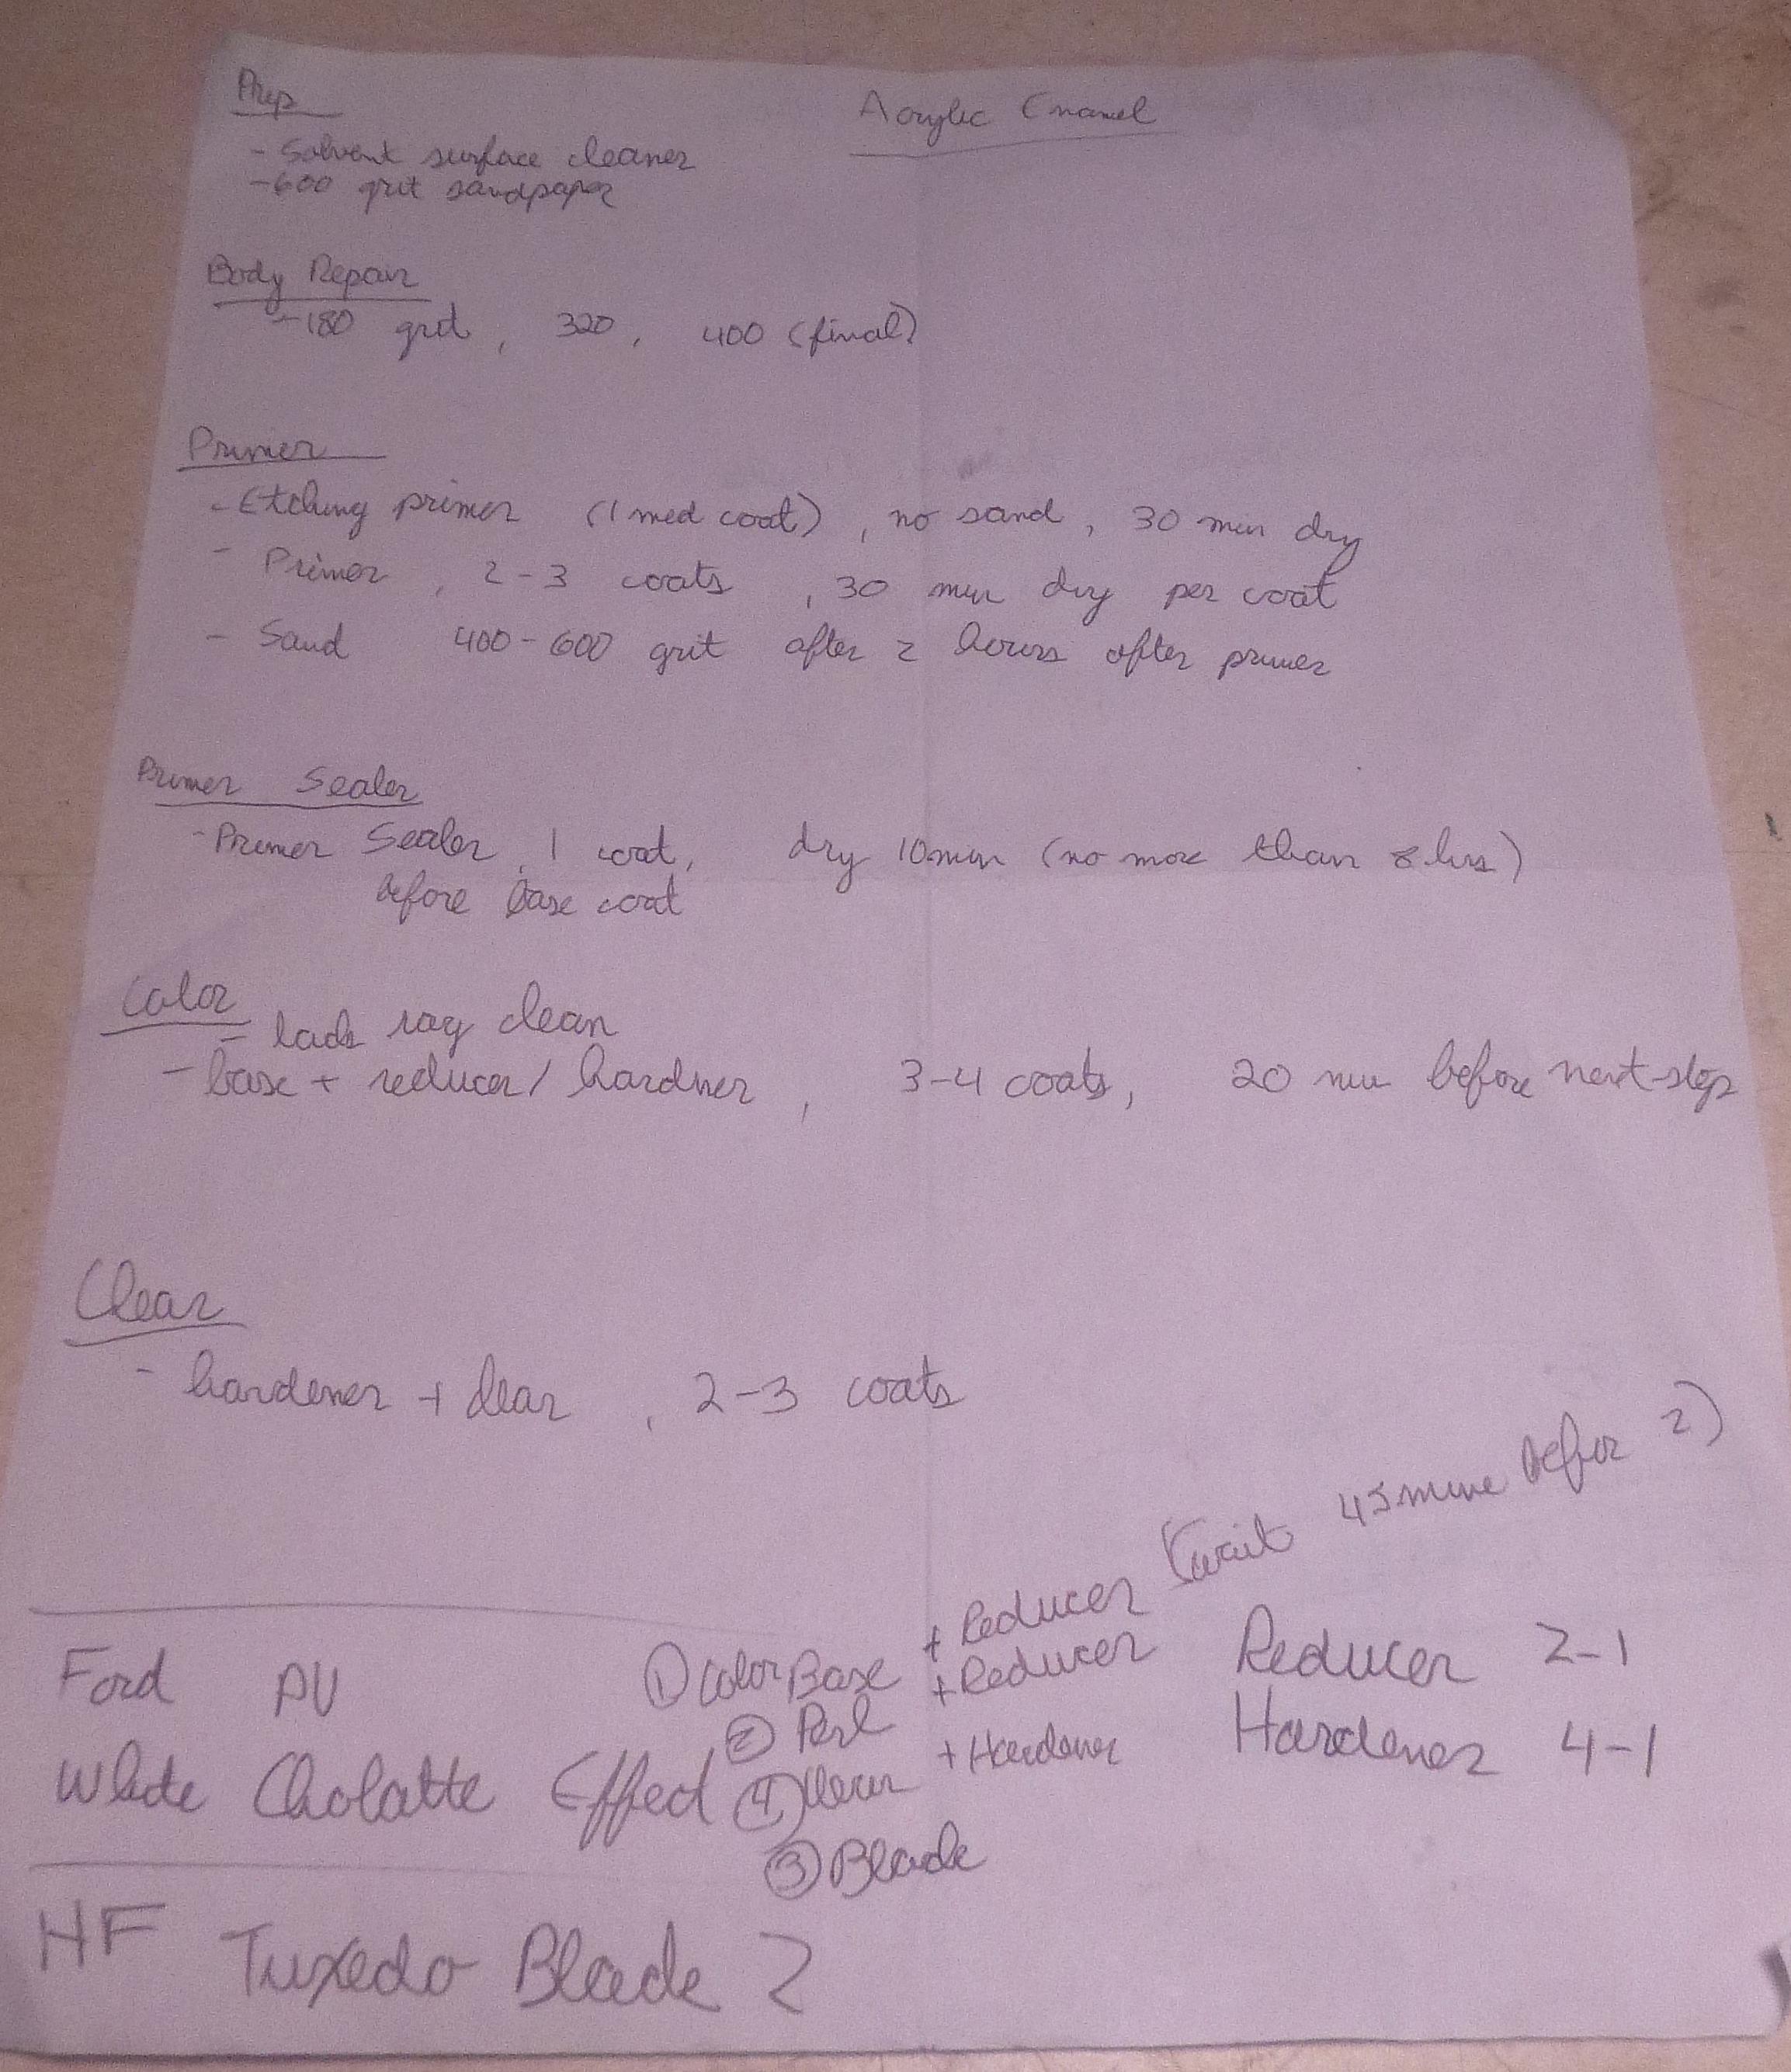 Prep
Acrylic Enamel
- Solvent surface cleaner
- 600 grit sandpaper
Body Repair
- 180 grit, 320, 400 (final)
Primer
- Etching primer (1 med coat), no sand, 30 min dry
- Primer, 2-3 coats, 30 min dry per coat
- Sand 400-600 grit after 2 hours after primer
Primer Sealer
- Primer Sealer, 1 coat, dry 10 min (no more than 8 hrs)
before base coat
Color
- rag clean
- base + reducer / hardner, 3-4 coats, 20 min before next step
Clear
- hardener + clear, 2-3 coats
(wait 45 mine befor 2)
Ford PU ① Color Base + Reducer Reducer 2-1
② Perl + Reducer
White Cholatte Effed ④ Clear + Hardener Hardener 4-1
③ Blade
HF Tuxedo Blade 2